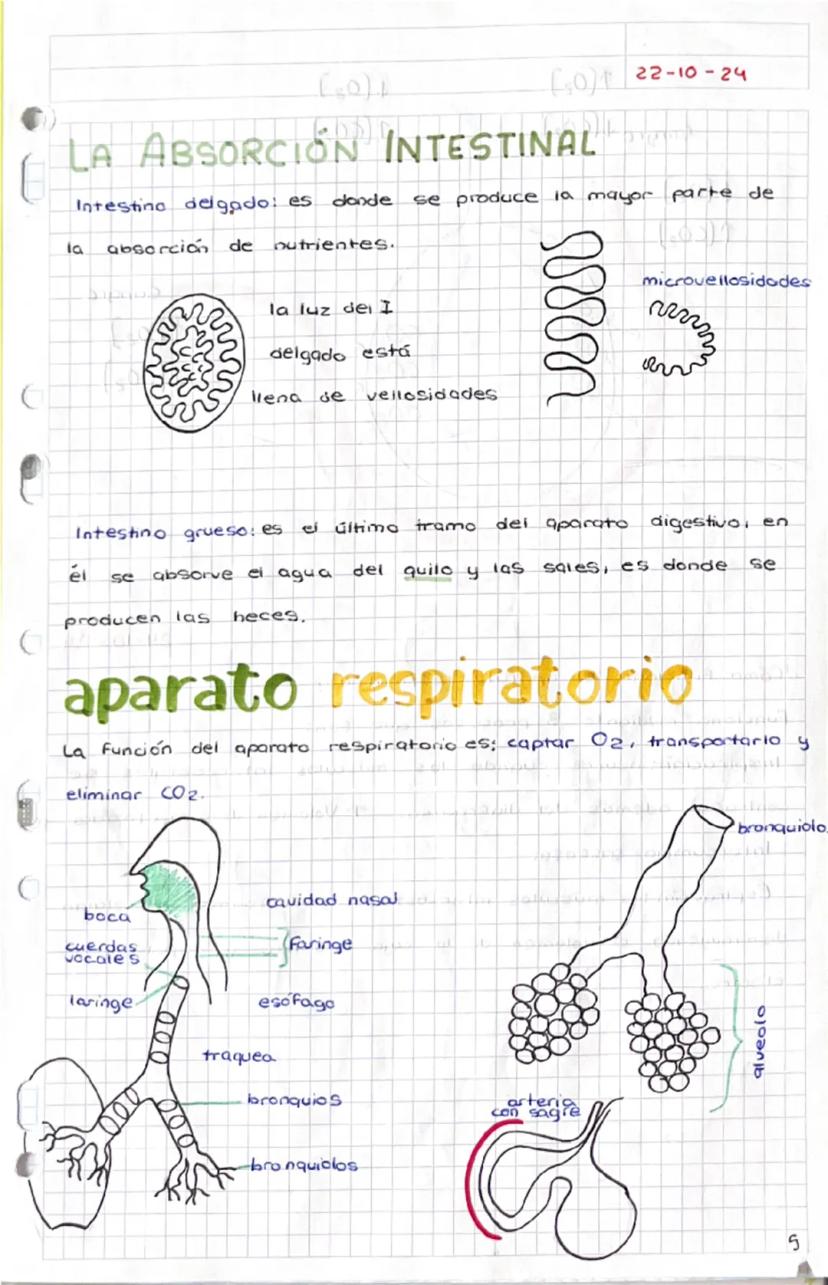 22-10-24
LA ABSORCIÓN INTESTINAL
Intestino delgado: es donde se produce la mayor parte de
la absorción de nutrientes.
microvellosidades
la luz del I
delgado está
llena de vellosidades
Intestino grueso: es el último tramo del aparato digestivo, en
él se absorve el agua del quilo y las sales, es donde se
producen las heces.
aparato respiratorio
La función del aparato respiratorio es: captar O2, transportarlo y
eliminar CO2.
bronquiolo
boca
cavidad nasal
cuerdas
vocales
faringe
laringe
esófago
traquea
alveolo
bronquios
arteria
con sagre
bronquiolos
5